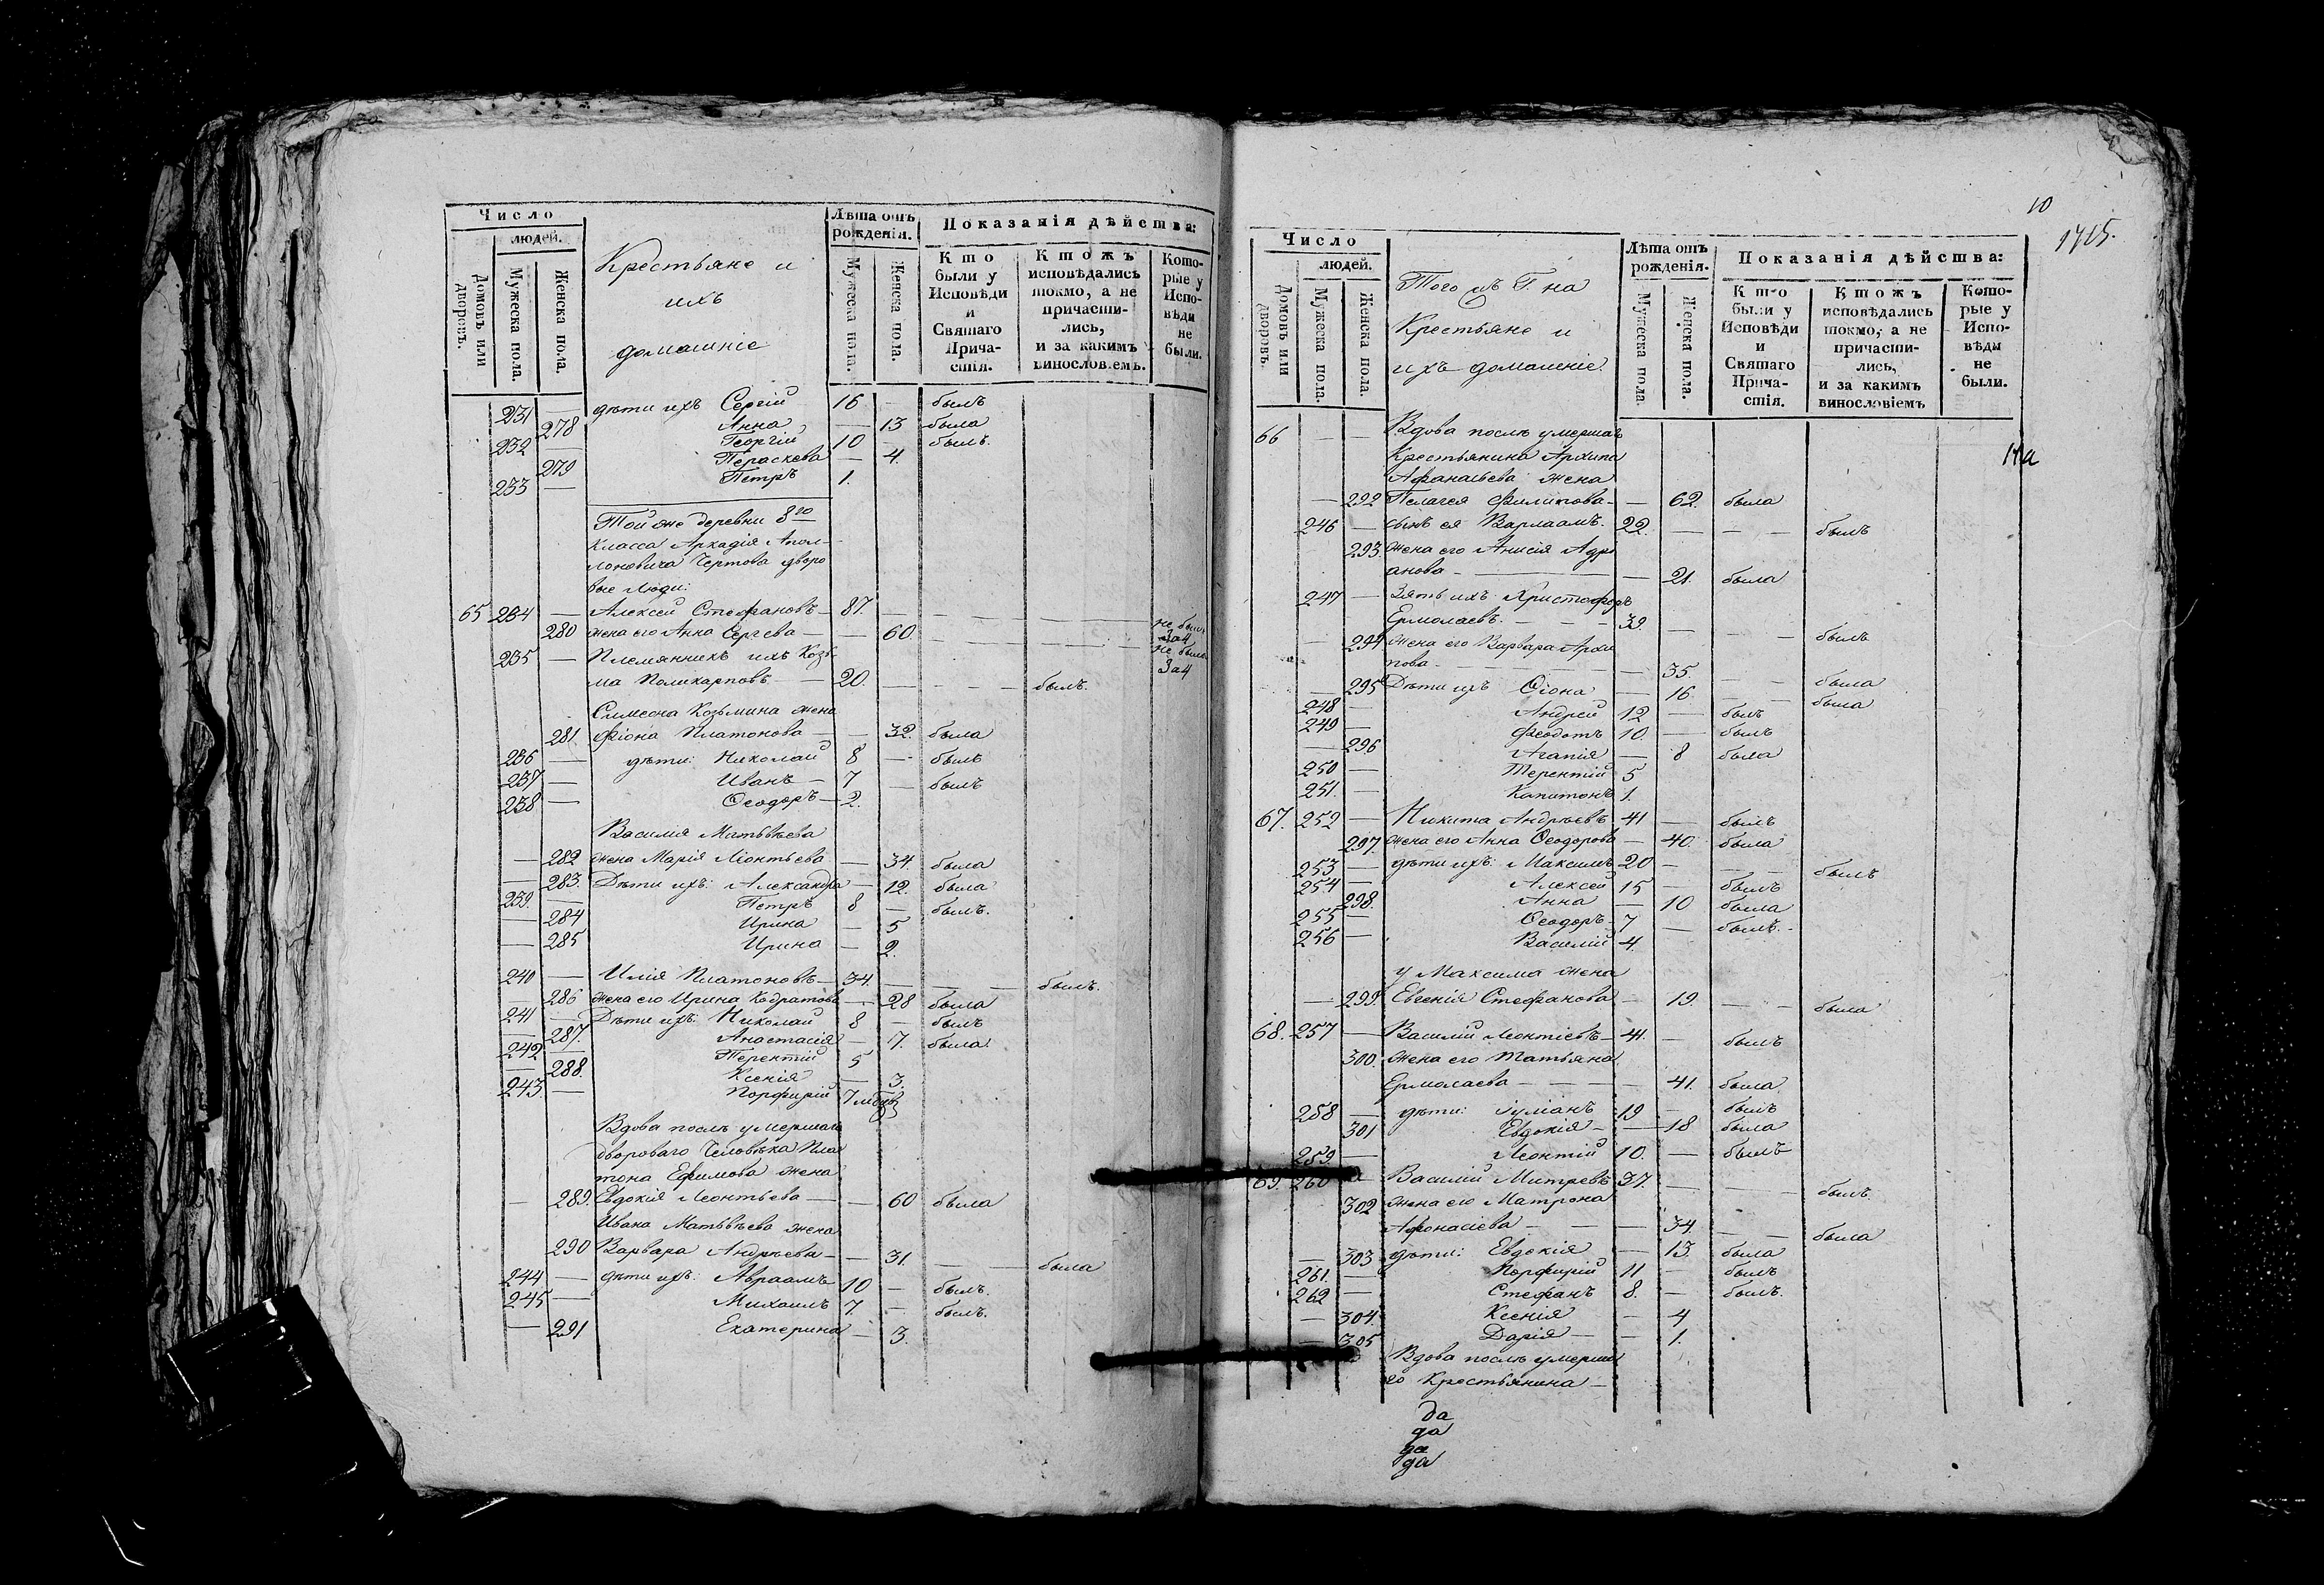 Число
людей.
Домовъ или дворовъ.
Мужеска пола.
Женска пола.
Крестьяне и
ихъ
домашніе
Лѣта отъ
рожденія.
Мужеска пола.
Женска пола.
Показанія дѣйства:
Кто
были у
Исповѣди
и
Святаго
Прича-
стія.
Ктожъ
исповѣдались
токмо, а не
причасти-
лись,
и за какимъ
винословіемъ.
Кото-
рые у
Испо-
вѣди
не
были.
231 — дѣти ихъ Сергій 16 — былъ
278 Анна — 13 была
232 — Георгій 10 — былъ.
279 Пераскева — 4.
233 — Петръ 1.
Той же деревни 8го
класса Аркадія Апол-
лоновича Чертова дворо
вые люди:
65 234 — Алексей Стефановъ — 87. — не былъ
за 4
280 жена его Анна Сергѣева — 60 — не была
за 4
235 — Племянникъ ихъ Козь-
ма Поликарповъ — 20. — — — былъ.
Симеона Козьмина жена
281 Фіона Платонова — — 32. была
236 — дѣти: Николай 8 — былъ
237 — Иванъ — 7 — былъ
238 — Ѳеодоръ — 2.
Василія Матвѣева
— 282 жена Марія Ліонтьева — 34. была
— 283. Дѣти ихъ: Александра — 12. была
239. — Петръ 8 — былъ.
— 284 Ирина — 5
— 285 Ирина — 2.
240 — Илія Платоновъ — 34. — — — былъ.
— 286 жена его Ирина Кодратова — 28 была
241 — Дѣти ихъ: Николай 8 — былъ
— 287. Анастасія — 7. была.
242 — Терентій 5
— 288. Ксенія — 3.
243 — Порфирій 7
Вдова послѣ умершаго
двороваго человѣка Пла
тона Ефимова жена
— 289. Евдокія Леонтьева — — 60 была
Ивана Матвѣева жена
290 Варвара Андреева — — 31. — — была
244 — дѣти ихъ: Авраамъ 10 — былъ.
245 — Михаилъ 7. — былъ.
— 291 Екатерина — 3.
10
1715.
Число
людей.
Домовъ или дворовъ.
Мужеска пола.
Женска пола.
Того жъ Г. на
Крестьяне и
ихъ домашніе.
Лѣта отъ
рожденія.
Мужеска пола.
Женска пола.
Показанія дѣйства:
Кто
были у
Исповѣди
и
Святаго
Прича-
стія.
Ктожъ
исповѣдались
токмо, а не
причасти-
лись,
и за какимъ
винословіемъ
Кото-
рые у
Испо-
вѣди
не
были.
66 — — Вдова послѣ умершаго
Крестьянина Архипа
Афанасьева жена
— 292 Пелагея Филипова — — 62. была
246 — сынъ ея Варлаамъ. 22. — — — былъ
293. жена его Анисія Адрі
анова — — 21. была
247 — Зять ихъ Христофоръ
Ермолаевъ. — — — 39. — — — былъ
— 294 жена его Варвара Архи
пова — — 35. — — была
— 295 Дѣти ихъ Ѳіона — 16 — — была
248 — Андрей 12 — былъ
249 — Феодотъ 10 — былъ
— 296 Агапія — 8 была
250 — Терентій 5
251. — Капитонъ 1.
67. 252 — Никита Андреевъ 41 — былъ
297. жена его Анна Ѳеодорова — 40. была
253 — дѣти ихъ: Максимъ 20 — — — былъ
254 — Алексей 15 — былъ
298. Анна — 10 была
255 — Ѳеодоръ — 7 — былъ.
256 — Василій 4.
у Максима жена
— 299. Евгенія Стефанова — 19. — — была
68. 257 — Василій Леонтіевъ — 41. — былъ
300. жена его Татьяна
Ермолаева — — — — 41. была
258 — дѣти: Іуліанъ 19 — былъ
301 Евдокія — — 18 была
259. — Леонтій 10. — былъ
69. 260 Василій Митревъ 37. — — — былъ.
302 жена его Матрона
Афонасіева — — — 34. — — была
— 303 дѣти: Евдокія — 13. была
261. — Порфирій 11 — былъ
262 — Стефанъ 8. — былъ.
— 304. Ксенія — 4
305 Дарія — — 1.
Вдова послѣ умерша
го Крестьянина —
да
да
да
да